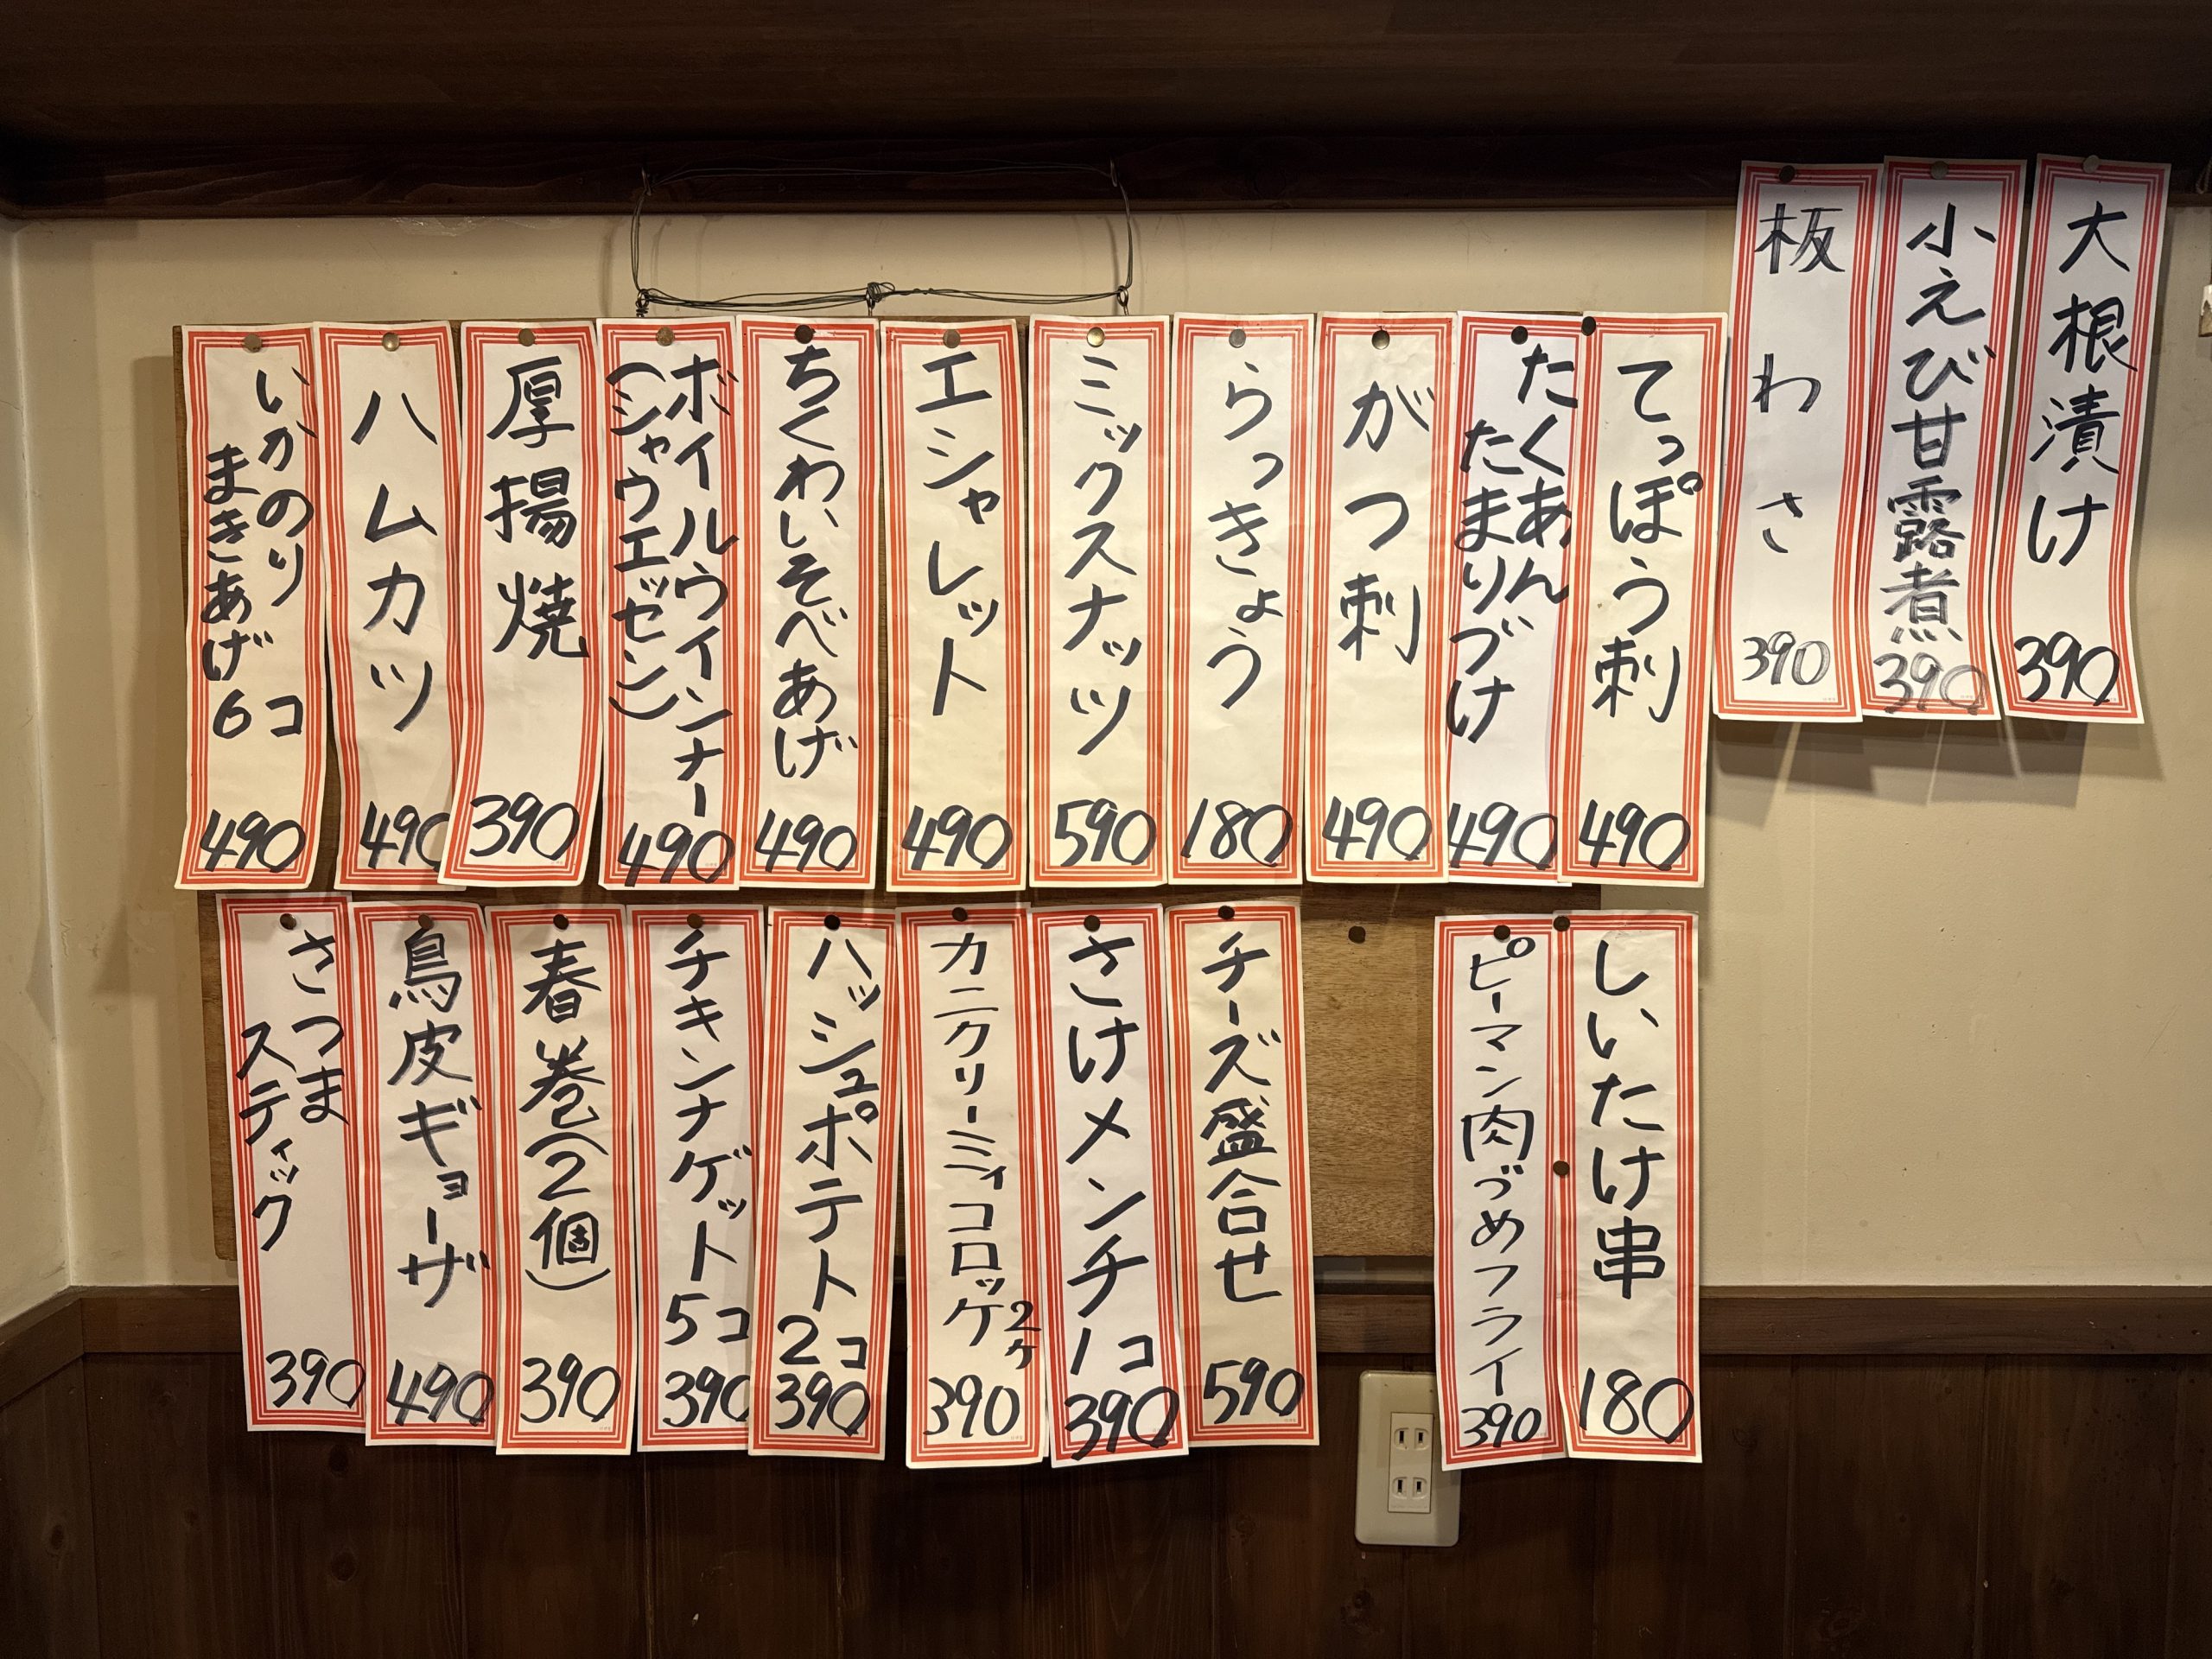 大根漬け
390
小えび甘露煮
390
板わさ
390
てっぽう刺
490
たくあん
たまりづけ
490
がつ刺
490
らっきょう
180
ミックスナッツ
590
エシャレット
490
ちくわしそべあげ
490
ボイルウインナー
(シャウエッセン)
490
厚揚焼
390
ハムカツ
490
いかのり
まきあげ
6コ
490
しいたけ串
180
ピーマン肉づめフライ
390
チーズ盛合せ
590
さけメンチ
1コ
390
カニクリーミィコロッケ
2ヶ
390
ハッシュポテト
2コ
390
チキンナゲット
5コ
390
春巻(2個)
390
鳥皮ギョーザ
490
さつま
スティック
390